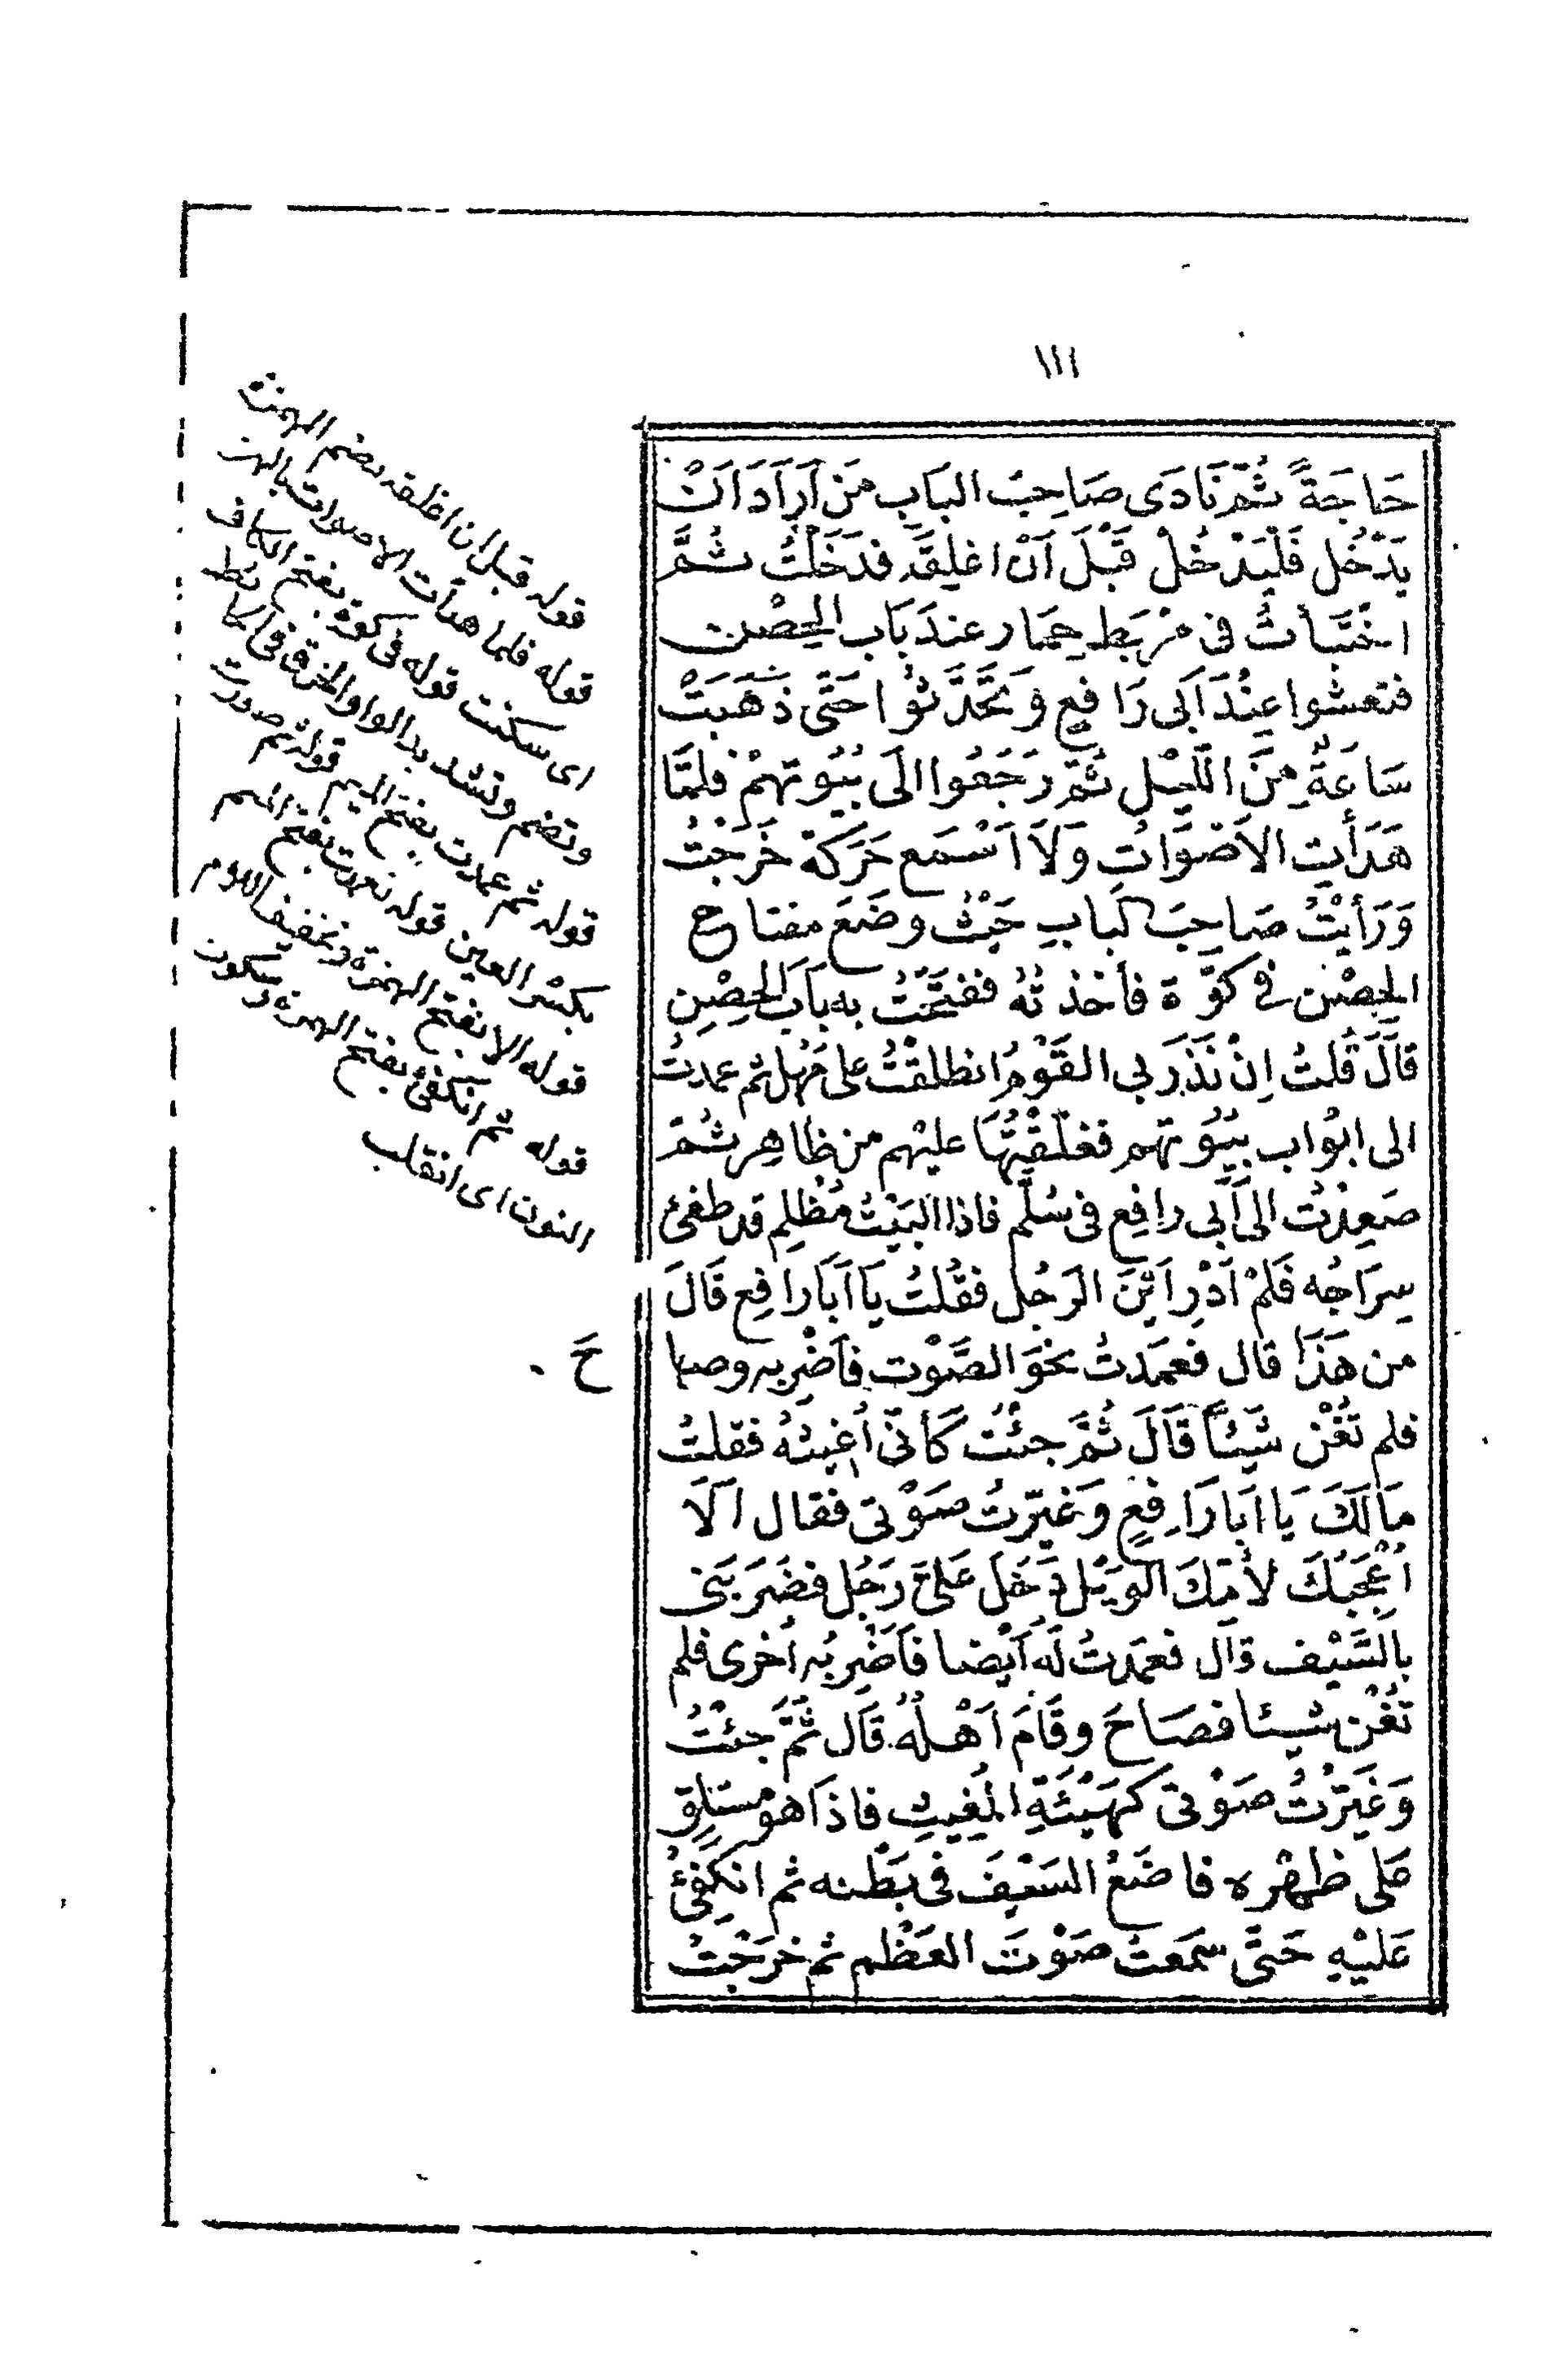 ١١١
حَاجَةً ثُمَّ نَادَى صَاحِبُ البَابِ مَن اَرَادَ اَنْ
يَدْخُل فَلْيَدْخُلْ قَبْلَ اَنْ اغلِقَه فدَخَلْتُ ثُمَّ
اخْتَبَأتُ فى مَرْبَطِ حِمَار عندَ بَابِ الحِصْن
فتعشوا عِنْدَ اَبى رَافِعٍ وَتَحَدَّثُوا حَتَّى ذَهَبَتْ
سَاعَةٌ مِنَ اللَّيْلِ ثُمَّ رَجَعُوا الَى بُيُوتهِمْ فلَمَّا
هَدَأَتِ الاَصْوَاتُ وَلاَ اَسْمَع حَرَكة خَرَجْتُ
وَرَأَيْتُ صَاحِبَ البابِ حَيْثُ وضَعَ مفتاح
الحِصْن فى كوَّة فأخذتُهُ ففَتَحْتُ به بَابَ الحِصْنِ
قالَ قُلتُ اِنْ نَذَرَ بى القَوْمُ انطلقْتُ على مَهْل ثم عمدتُ
الى ابْوَاب بيُوتهم فغلّقْتُهَا عليْهم من ظاهِر ثُمّ
صَعِدْتُ الى اَبى رافِع فى سُلّم فاذا البَيْتُ مُظلِم قد طفئ
سِرَاجُه فَلَمْ اَدْرِ اَيْنَ الرَجُل فقُلتُ يَا اَبَا رافِع قَالَ
من هَذَا قال فعمَدتُ نحْوَ الصَّوْت فأضْرِبه وصاح
فلم تُغْن شَيْئاً قَالَ ثُمَّ جئْت كَأنّى اُغيثهُ فقلتُ
مَا لَكَ يَا ابَا رَافِعٍ وَغيّرتُ صَوْتى فقال اَلَا
اُعْجِبُكَ لأمّكَ الوَيْل دَخَلَ عَلىَّ رَجُل فضَرَبَنى
بالسَّيْف قال فعَمَدتُ لَه اَيْضا فَاَضْرِبُه اُخرى فلم
تُغْن شيئا فصَاحَ وقَامَ اَهْلُهُ قَال ثُمَّ جئْتُ
وَغَيَّرْتُ صَوْتى كهَيْئَةِ المُغِيثِ فاذَا هوَ مسْتَلِقٍ
على ظهْره فاضَعُ السَيْفَ فى بَطْنه ثم انكَفِئُ
عَليْهِ حَتَّى سمَعتُ صَوْتَ العَظْم ثم خرَجْتُ
قوله قبل ان اغلقه بضم الهمزة
قوله فلما هدأت الاصوات بالهمز
اى سكنت قوله فى كوة بفتح الكاف
وتضم وتشديد الواو الخرق فى الحائط
قوله ثم عمدت بفتح الميم قوله ثم صعدت
بكسر العين قوله نعمدت بفتح الميم
قوله الا بفتح الهمزة وتخفيف اللام
قوله ثم انكفئ بفتح الهمزة وسكون
النون اى انقلب
حَ